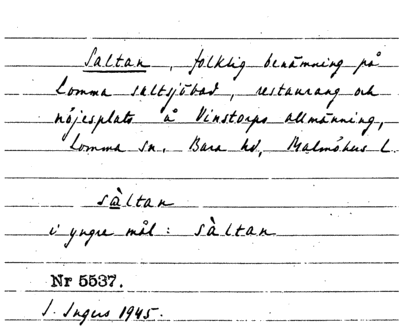 Saltan, folklig benämning på
Lomma saltsjöbad, restaurang och
nöjesplats å Vinstorps allmänning,
Lomma sn, Bara hd, Malmöhus l.
sàltan
i yngre mål: sàltan
Nr 5537.
I. Ingers 1945.